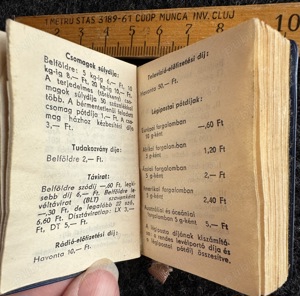 1 METRU STAS 3189-61 COOP MUNCA INV. CLUJ
Csomagok súlydíja:
Belföldre: 5 kg-ig 6,— Ft, 10
kg-ig 8,— Ft, 20 kg-ig 10,— Ft,
A terjedelmes (törékeny) cso-
magok súlydíja 50 százalékkal
több. A bérmentetlenül feladott
csomag pótdíja 1,— Ft. A cso-
mag házhoz kézbesítési díja
3,— Ft.
Tudakozvány díja:
Belföldre 2,— Ft.
Távirat:
Belföldre szódíj —,60 Ft, leg-
kisebb díj 6,— Ft. Belföldre le-
véltávirat (BLT) szavanként
—,30 Ft, de legalább 22 szó,
6.60 Ft. Dísztáviratlap: LX 3,—
Ft, DT 5,— Ft.
Rádió-előfizetési díj:
Havonta 10,— Ft.
Televízió-előfizetési díj:
Havonta 50,— Ft.
Légipostai pótdíjak:
Európai forgalomban
20 g-ként —,60 Ft
Afrikai forgalomban
5 g-ként 1,20 Ft
Ázsiai forgalomban
5 g-ként 2,— Ft
Amerikai forgalomban
5 g-ként 2,40 Ft
Ausztráliai és óceániai
forgalomban 5 g-ként 5,— Ft
A légiposta díjának kiszámítá-
sa: a rendes levélportó díja és
a légipostai pótdíj összesítve.